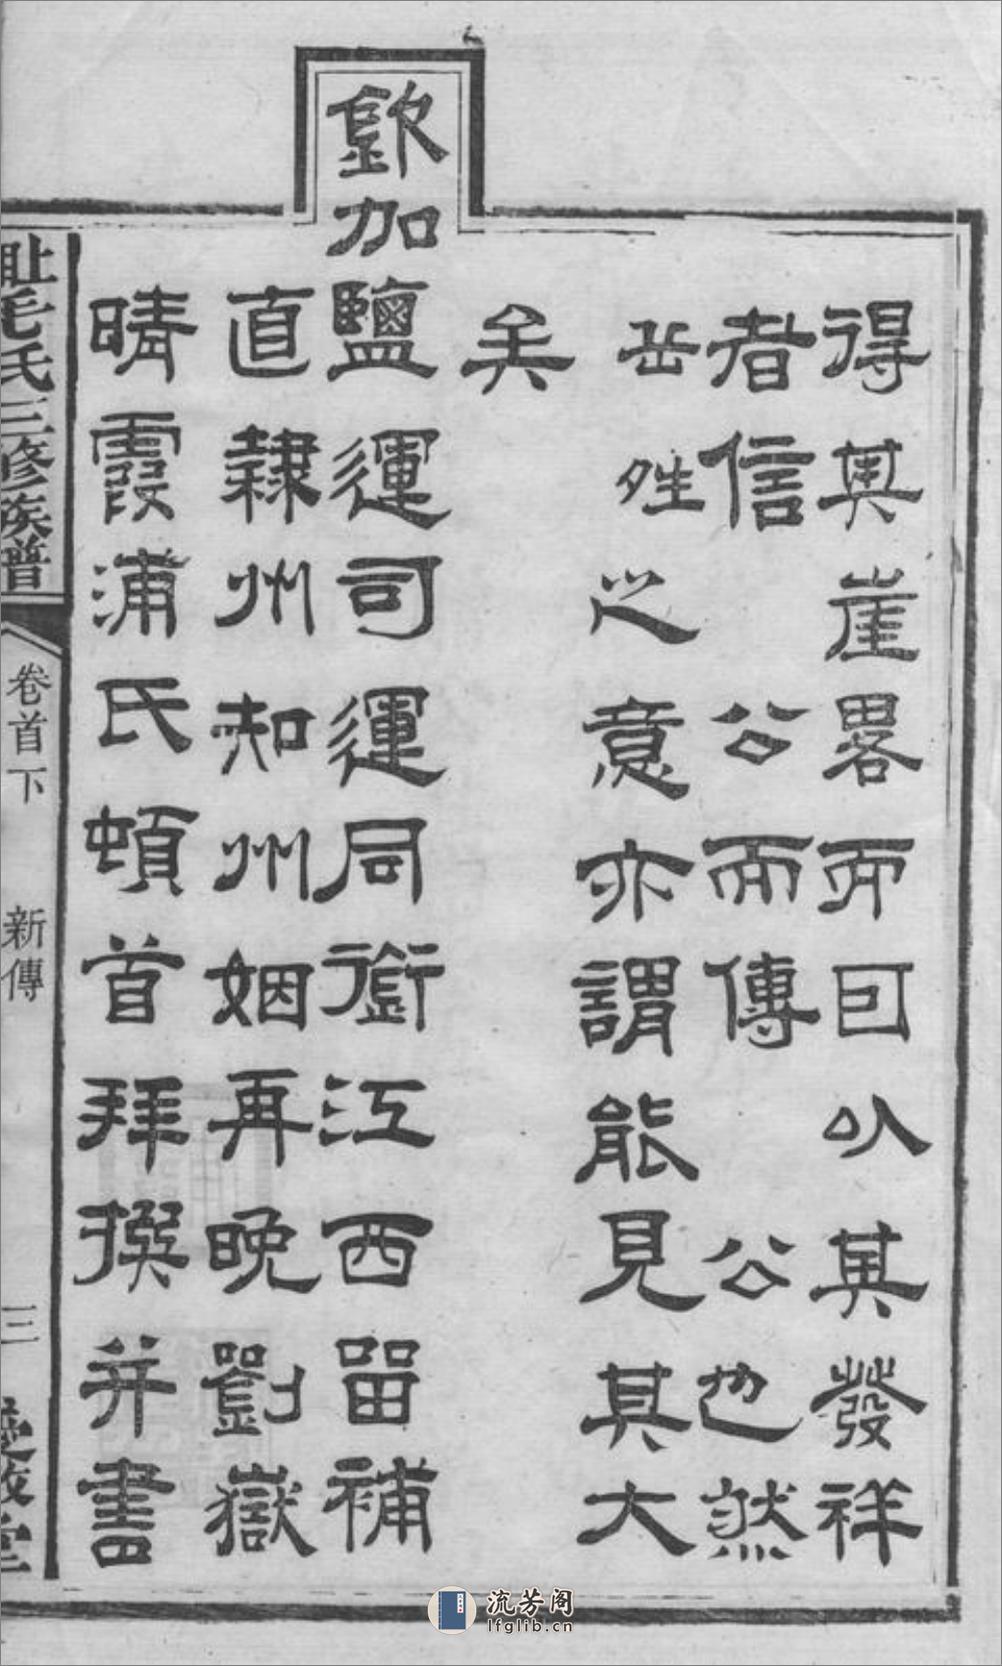 得其崖畧而囙以其發祥
者信公而傳公也然
岳夝之意亦謂能見其大
矣
欽加鹽運司運同銜江西留補
直隸州知州姻再晚劉嶽
晴霞浦氏頓首拜撰并書
毛氏三修族譜
卷首下
新傳
三
堂
流芳阁
lfglib.cn